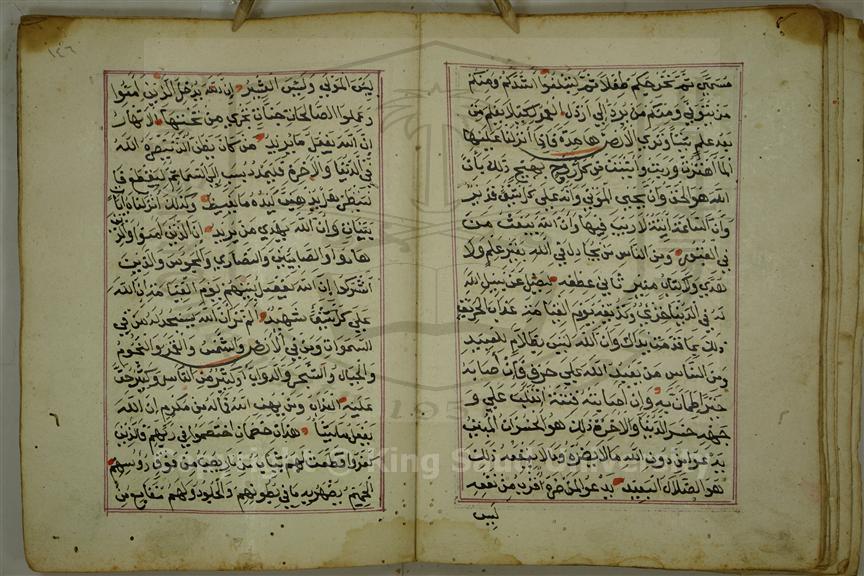 مسمى ثم نخرجكم طفلا ثم لتبلغوا اشدكم ومنكم
من يتوفى ومنكم من يرد الى ارذل العمر لكيلا يعلم من
بعد علم شيا وترى الارض هامدة فاذا انزلنا عليها
الما اهتزت وربت وانبتت من كل زوج بهيج ذلك بان
الله هو الحق وانه يحيى الموتى وانه على كل شيء قدير
وان الساعة اتية لا ريب فيها وان الله يبعث من
في القبور ومن الناس من يجادل في الله بغير علم ولا
هدى ولا كتاب منير ثاني عطفه ليضل عن سبيل الله
له في الدنيا خزى ونذيقه يوم القيامة عذاب الحريق
ذلك بما قدمت يداك وان الله ليس بظلام للعبيد
ومن الناس من يعبد الله على حرف فان اصابه
خير اطمان به وان اصابته فتنة انقلب على و
جهه خسر الدنيا والاخرة ذلك هو الخسران المبين
يدعوا من دون الله ما لا يضره وما لا ينفعه ذلك
هو الضلال البعيد يدعوا لمن ضره اقرب من نفعه
لبيس
١٤٦
لبيس المولى ولبيس العشير ان الله يدخل الذين امنوا
وعملوا الصالحات جنات تجري من تحتها الانهار
ان الله يفعل ما يريد من كان يظن ان لن ينصره الله
في الدنيا والاخرة فليمدد بسبب الى السماء ثم ليقطع فا
لينظر هل يذهبن كيده ما يغيظ وكذلك انزلناه ايات
بينات وان الله يهدي من يريد ان الذين امنوا والذين
هادوا والصابيين والنصارى والمجوس والذين
اشركوا ان الله يفصل بينهم يوم القيامة ان الله
على كل شيء شهيد الم تر ان الله يسجد له من في
السموات ومن في الارض والشمس والقمر والنجوم
والجبال والشجر والدواب وكثير من الناس وكثير حق
عليه العذاب ومن يهن الله فما له من مكرم ان الله
يفعل ما يشا هذان خصمان اختصموا في ربهم فالذين
كفروا قطعت لهم ثياب من نار يصب من فوق روسهم
الحميم يصهر به ما في بطونهم والجلود ولهم مقامع من
King Saud University
1957